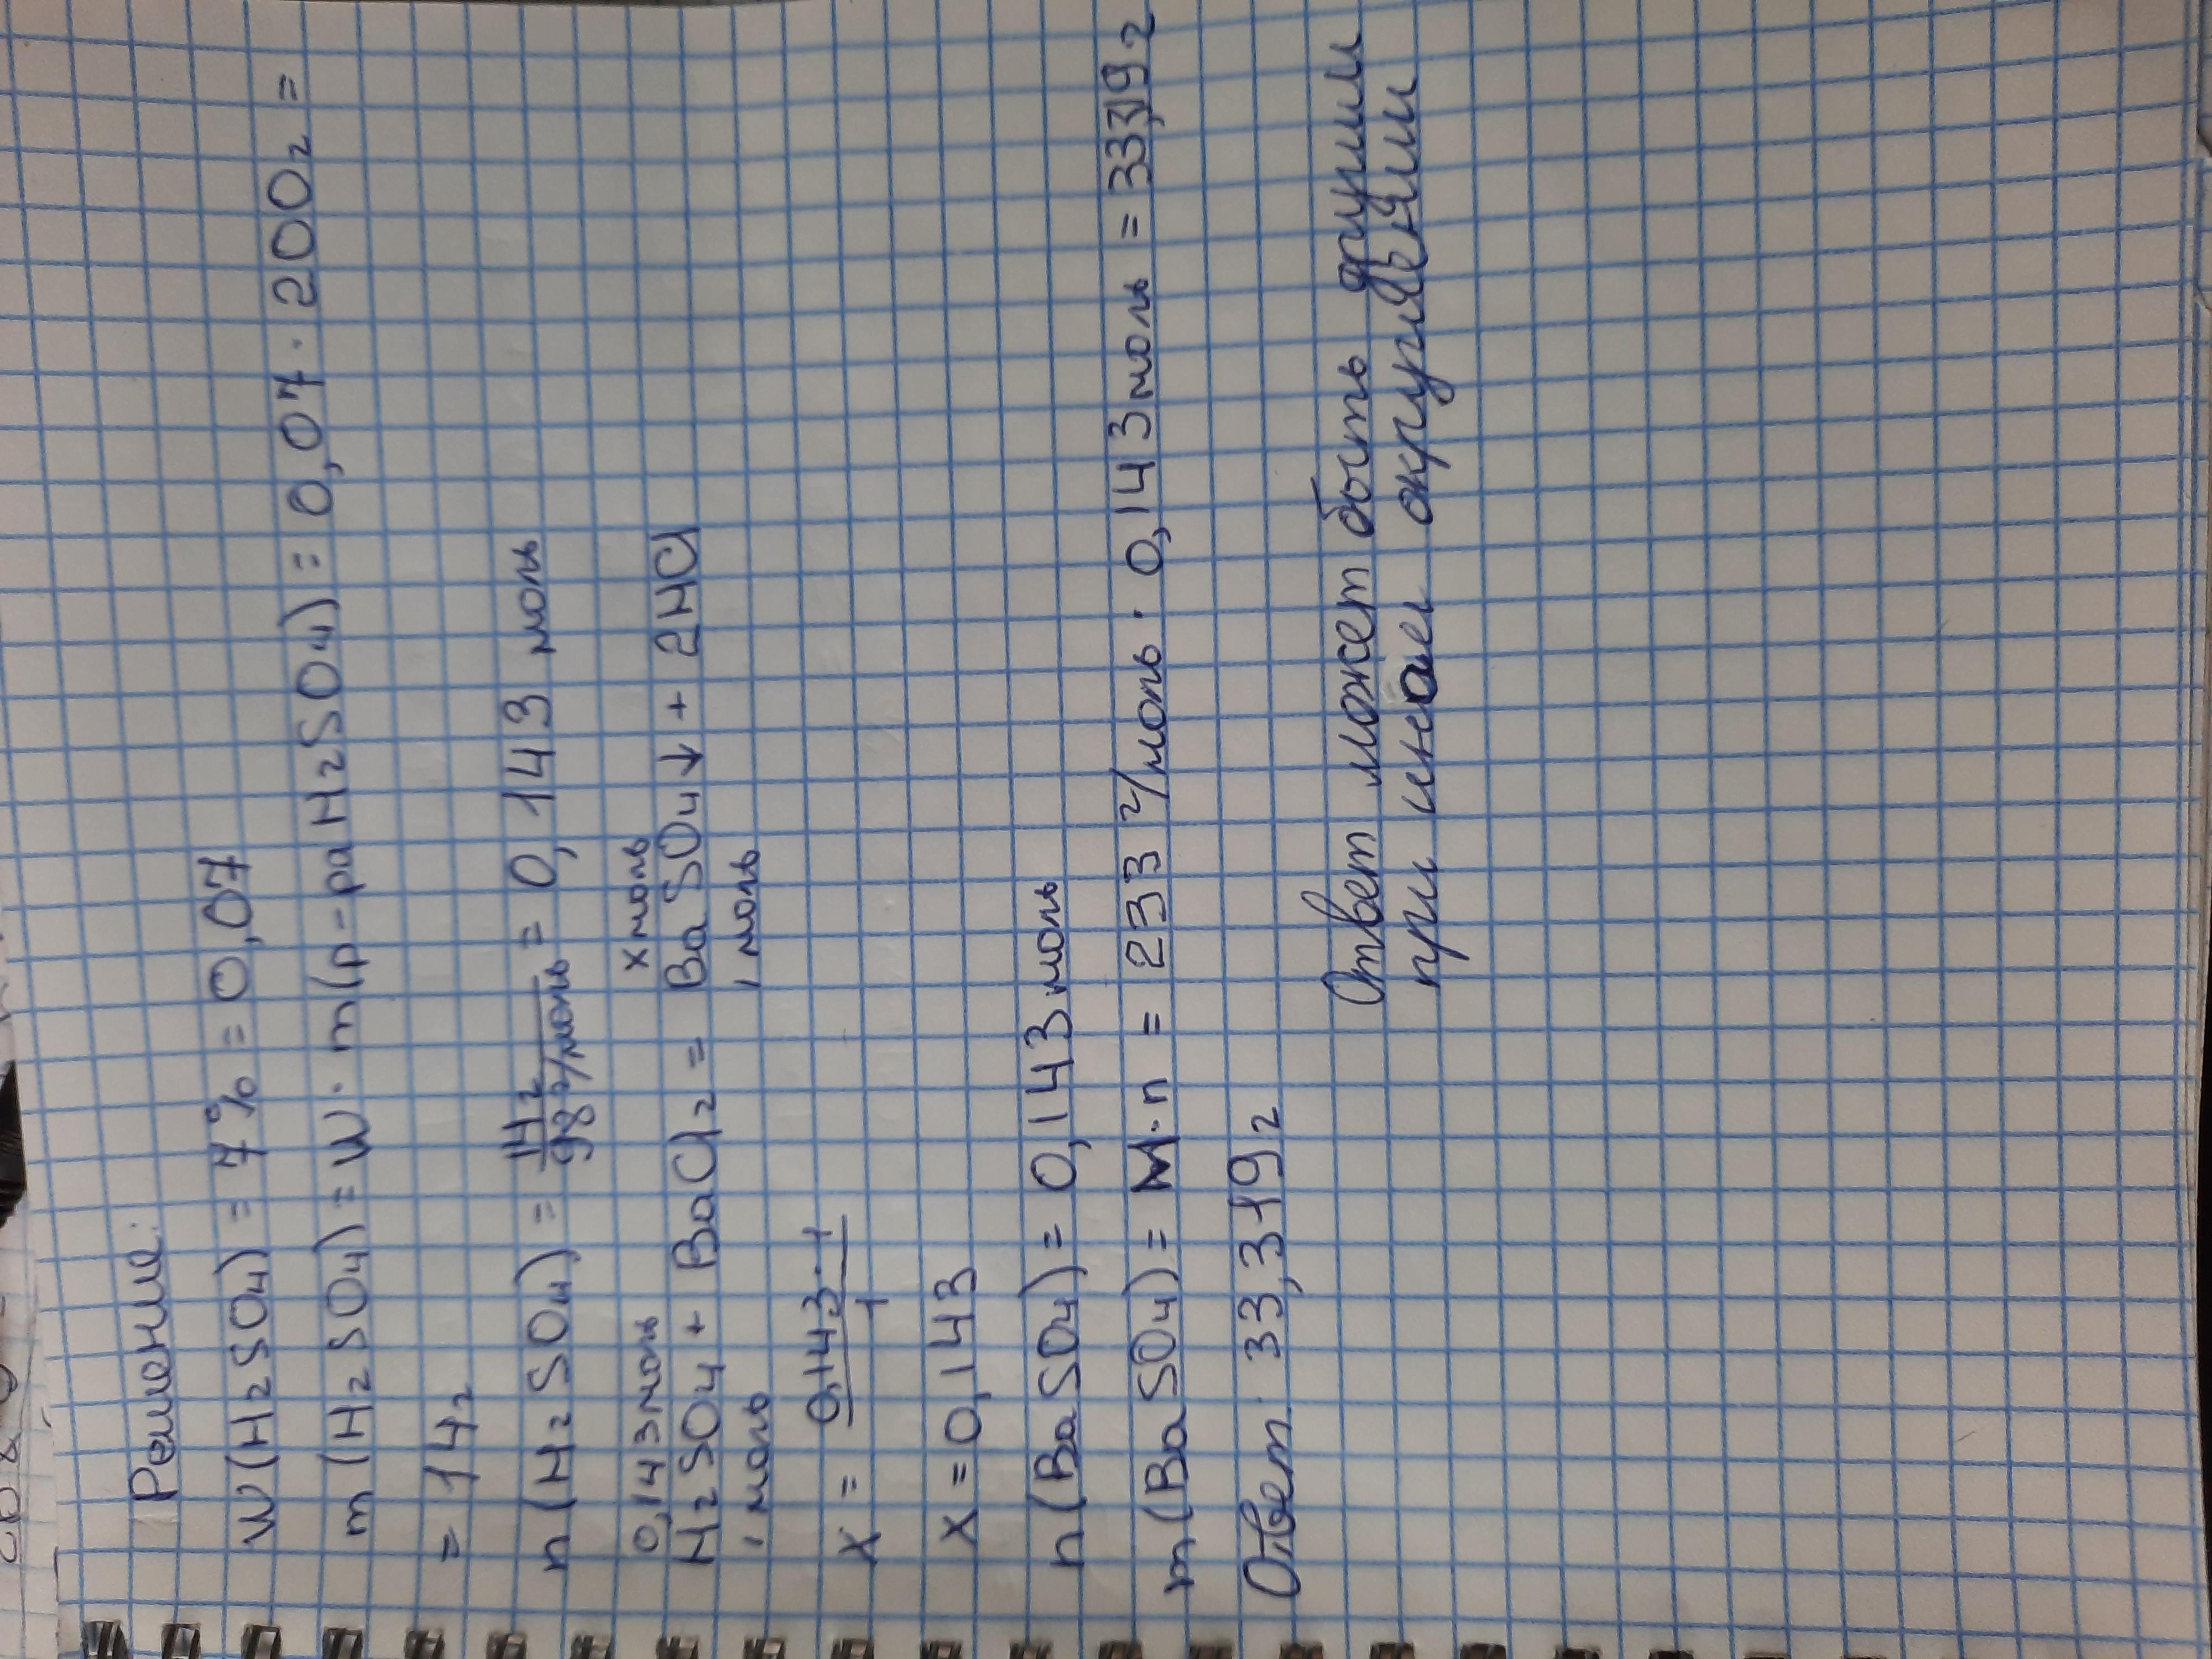 Решение:
W(H₂SO₄) = 7% = 0,07
m(H₂SO₄) = W · m(р-ра H₂SO₄) = 0,07 · 200г =
= 14г
n(H₂SO₄) = 14г/98 г/моль = 0,143 моль
0,143моль x моль
H₂SO₄ + BaCl₂ = BaSO₄↓ + 2HCl
1 моль 1 моль
x = 0,143·1/1
x = 0,143
n(BaSO₄) = 0,143моль
m(BaSO₄) = M·n = 233 г/моль · 0,143моль = 33,319г
Ответ: 33,319г
Ответ может быть другим
при ином округлении